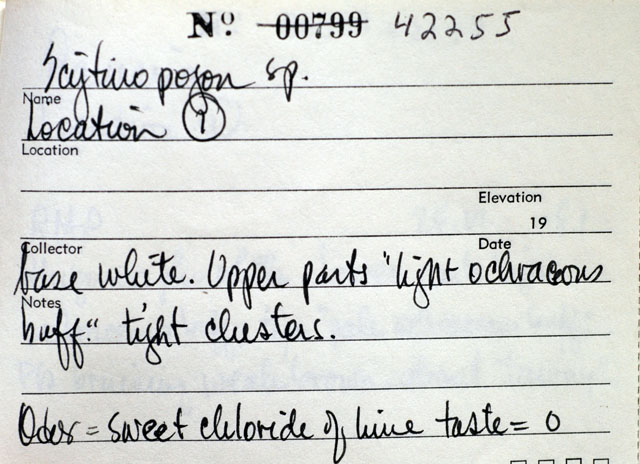 Nº 00799 42255
Scytinopogon sp.
Name
Location 9
Location
Elevation
19
Collector
Date
base white. Upper parts "light ochraceous
Notes
buff." tight clusters.
Odor = sweet chloride of lime taste = 0